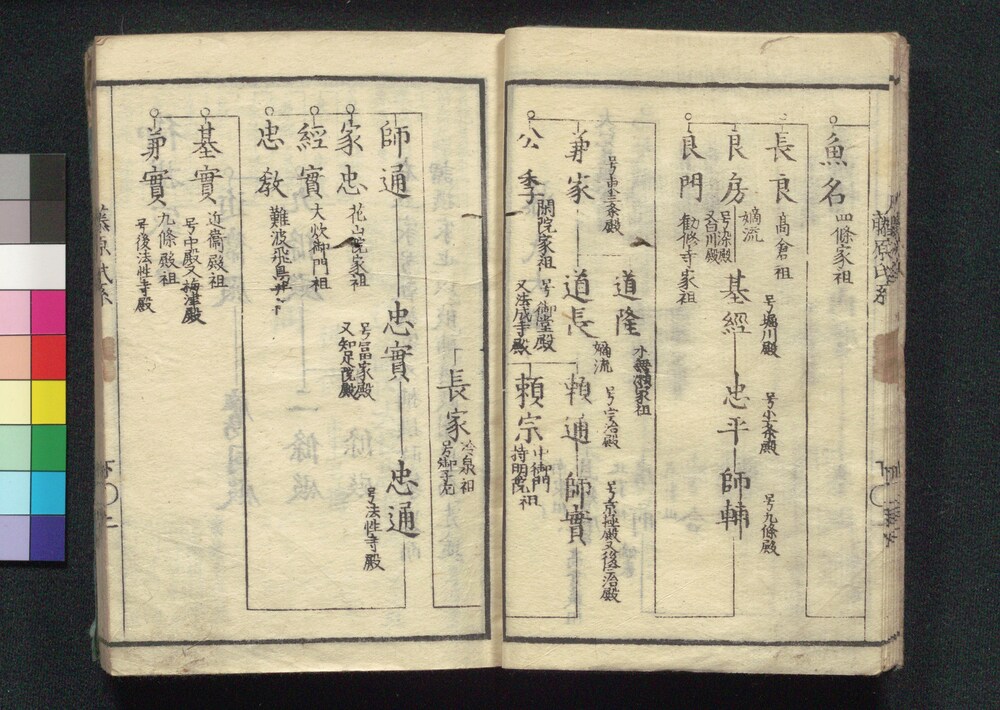 魚名 四條家祖
長良 高倉祖
良房 嫡流
号染殿
又白川殿
基經 号堀川殿
忠平 号小一条殿
師輔 号九條殿
良門 勧修寺家祖
兼家
道隆 水無瀬家祖
道長 嫡流
号御堂殿
又法成寺殿
頼通 号宇治殿
師實 号京極殿又後宇治殿
頼宗 中御門
持明院祖
公季 閑院家祖
長家 冷泉祖
師通
忠實 号冨家殿
又知足院殿
忠通 号法性寺殿
家忠 花山院家祖
經實 大炊御門祖
忠教 難波飛鳥井
基實 近衞殿祖
号中殿又梅津殿
兼實 九條殿祖
号後法性寺殿
藤原氏系